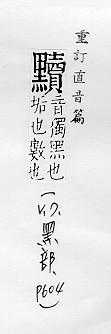 重訂直音篇
黷
音獨黑也
垢也數也
(V.7. 黑部, p604)